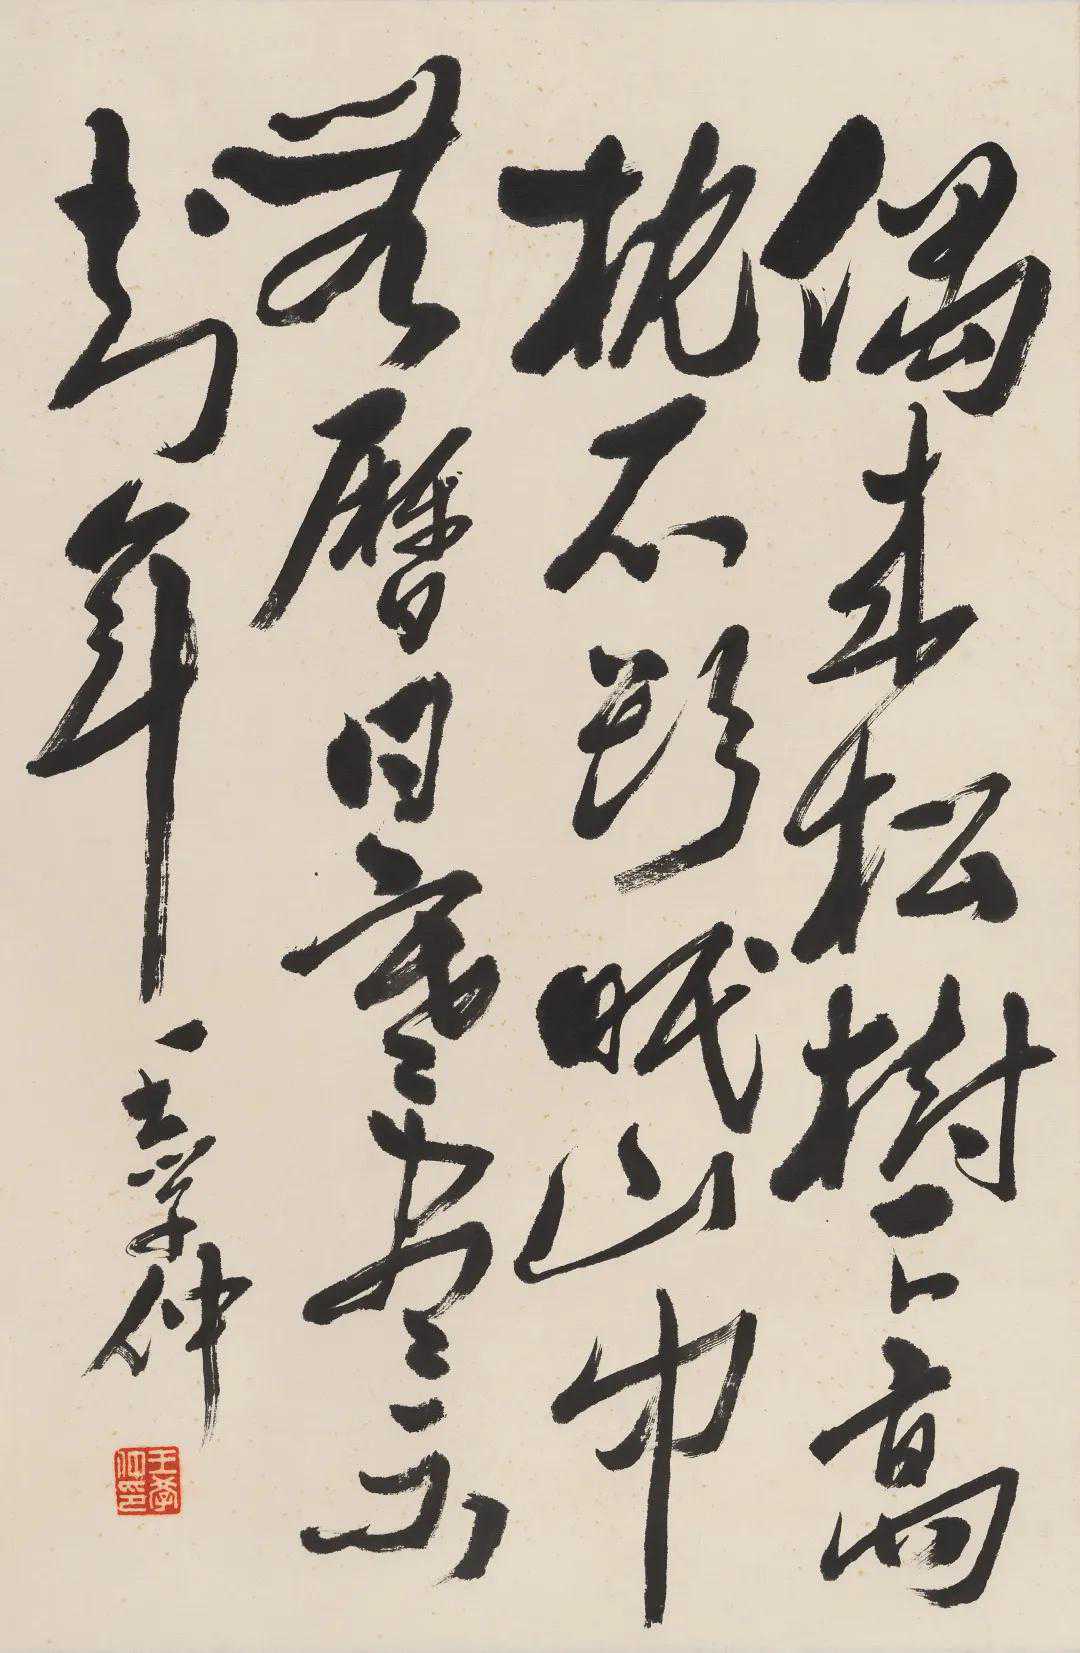 偶来松樹下高
枕石頭眠山中
無曆日寒盡不
知年
王學仲
王學仲印